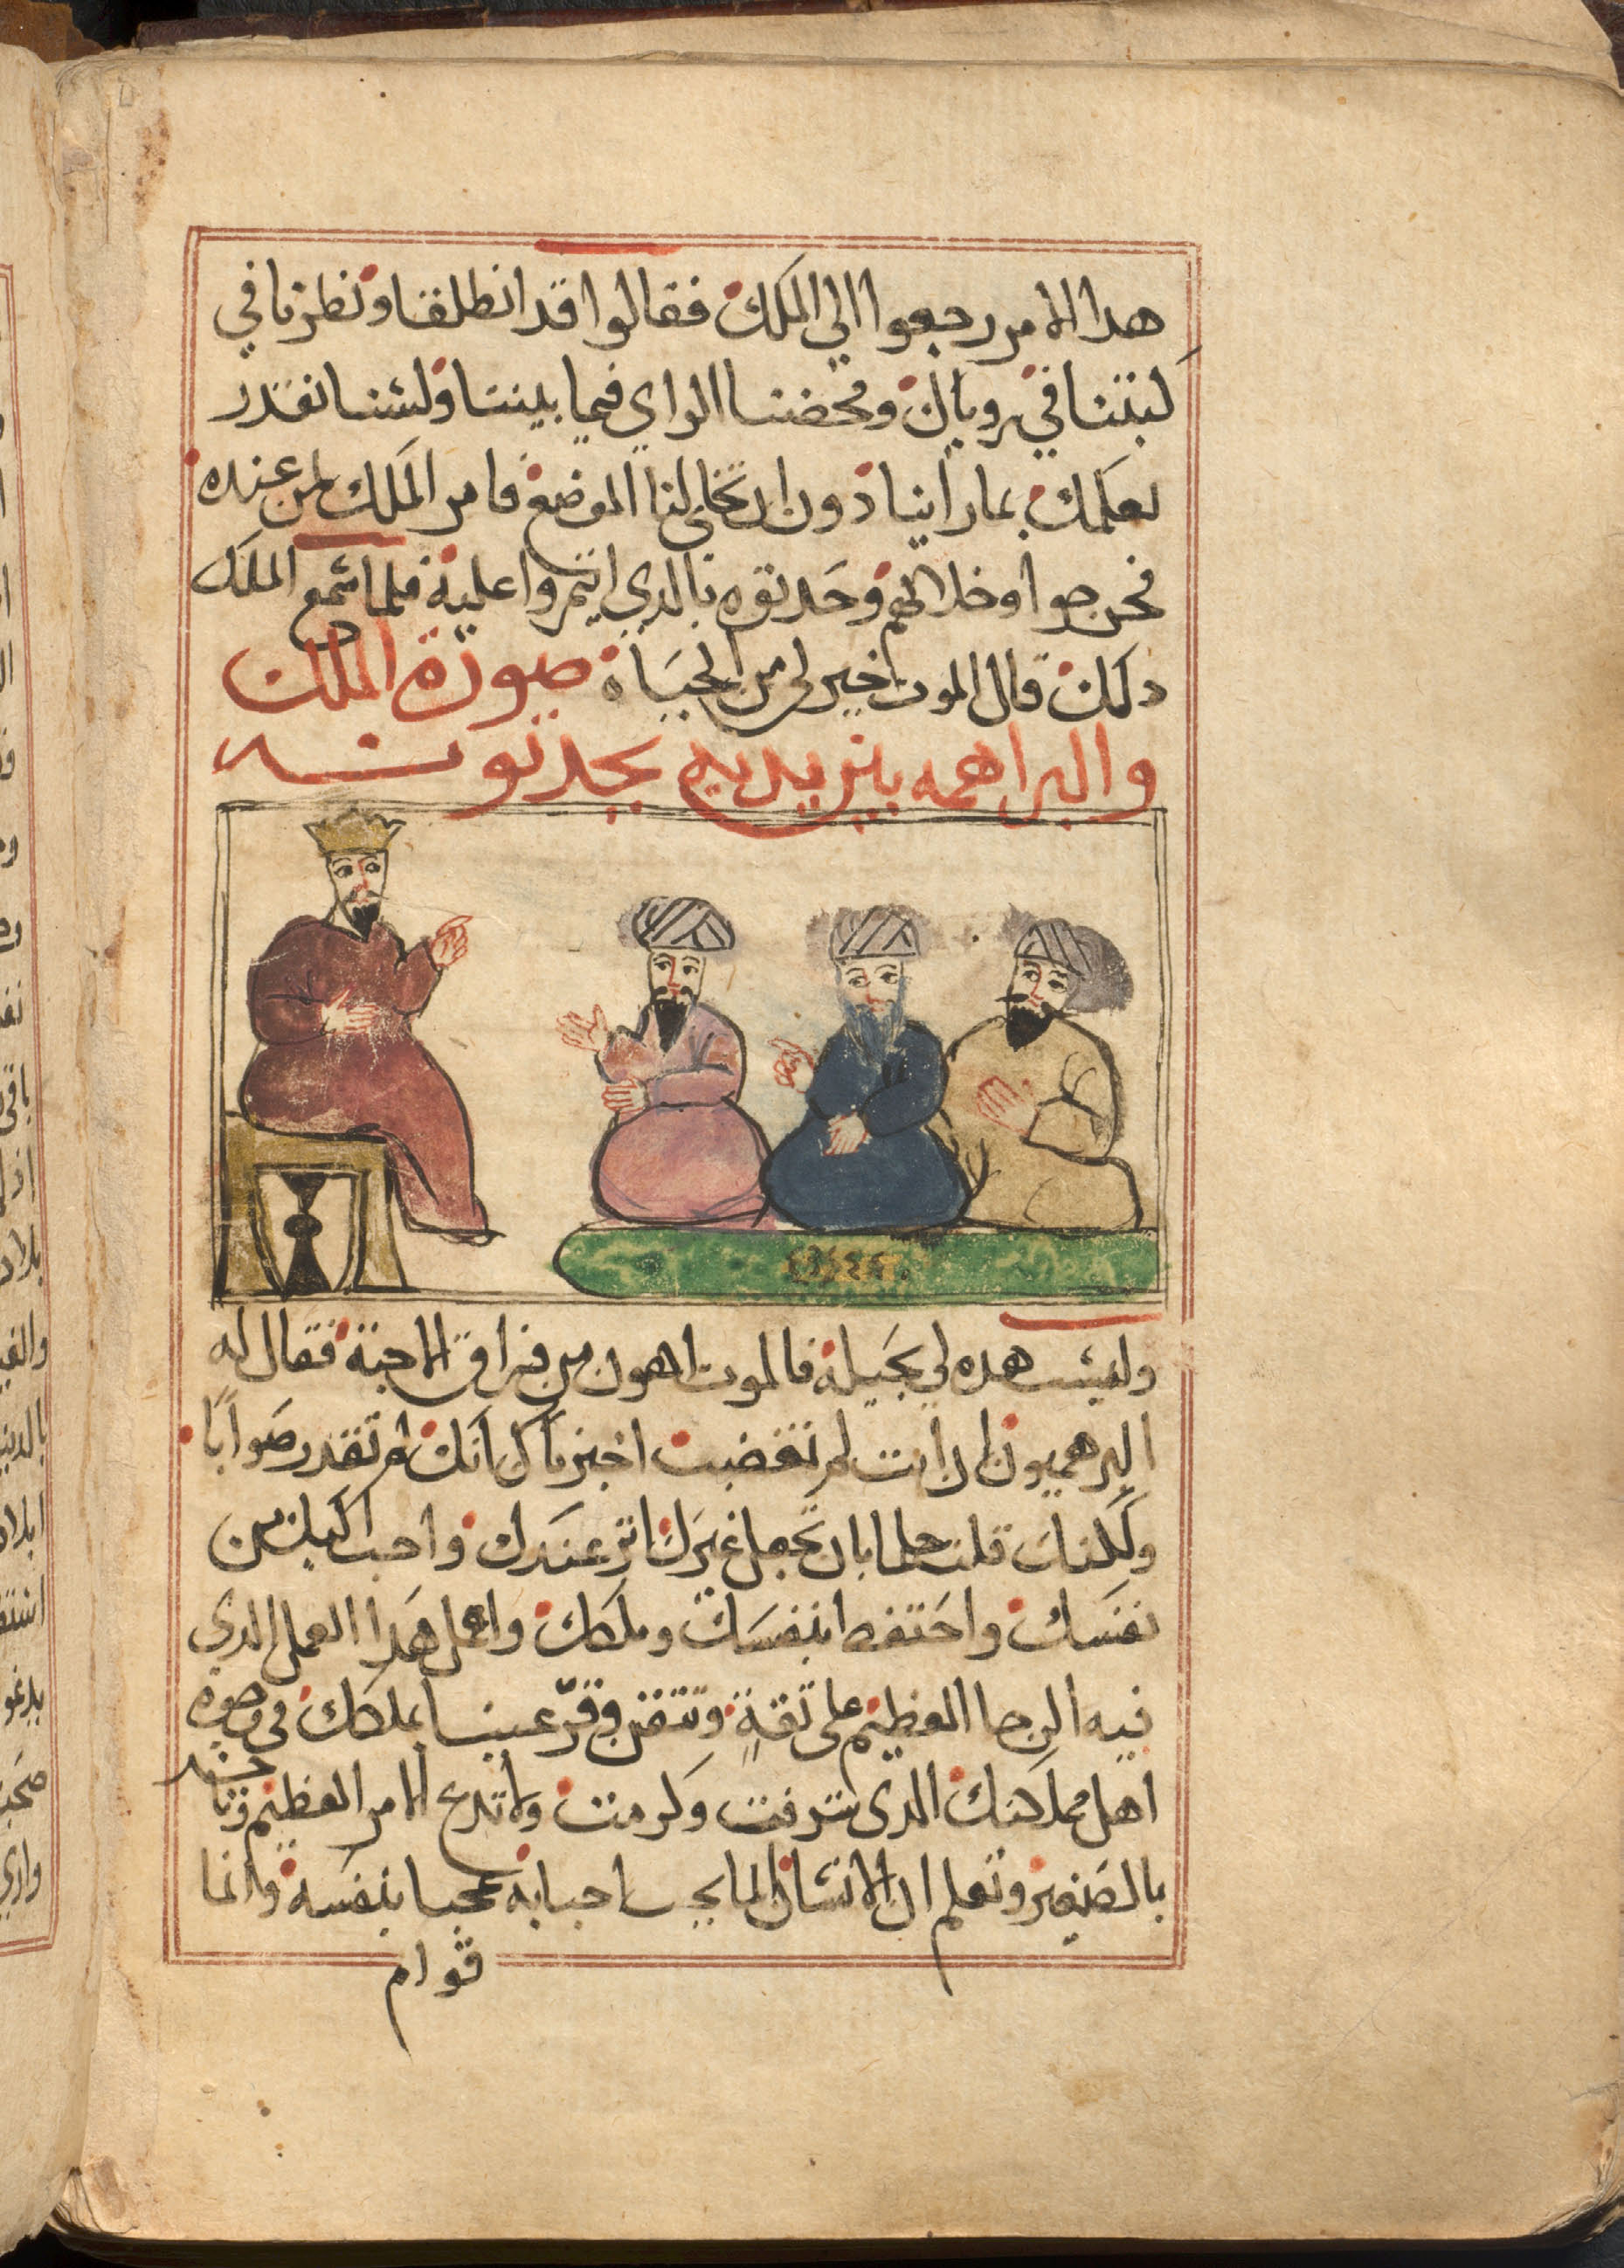 هدا الامر رجعوا الي الملك فقالوا قد انطلقنا ونظرنا في
كبتنا في روياك ومحضنا الراي فيما بيننا ولسنا نقدر
نعلمك بما راينا دون ان تخلي لنا الموضع فامر الملك لمن عنده
فخرجوا وخلا لهم وحدثوه بالدي ايتمروا عليه فلما سمع الملك
دلك قال الموت اخير لي من الحياة صورة الملك
والبراهمه بين يديه يحدثونه
وليست هده لي بحيله فالموت اهون من فراق الاحبة فقال له
البرهميون ان انت لم تغضب اخبرناك انك لم تقدر صوابا
ولكنك قلت حلما بان تجعل غيرك اثر عندك واحب اليك من
نفسك واحتفط بنفسك وملكك واعمل هدا العمل الدي
فيه الرجا العظيم على ثقة وتتقن وقر عينا بملكك في وجوه
اهل مملكتك الدى شرفت وكرمت ولا تدع الامر العظيم وتاخد
بالصغير وتعلم ان الانسان انما يحب احبابه محبا بنفسه وانما
قوام